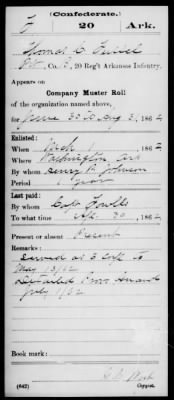 (Confederate.)
20 Ark.
Thomas C.
Pvt., Co. 20 Reg't Arkansas Infantry.
Appears on
Company Muster Roll
of the organization named above,
for June 30 to Aug 3, 1862
Enlisted:
When Mch 1, 1862
Where Washington Ark
By whom Henry P. Johnson
Period 1 year
Last paid:
By whom Capt
To what time Apr 30, 1862
Present or absent Present
Remarks:
Served as 3 Corp to
May 13/62
Detailed Prov. Guard
July 1/62
Book mark:
(642)
Copyist.